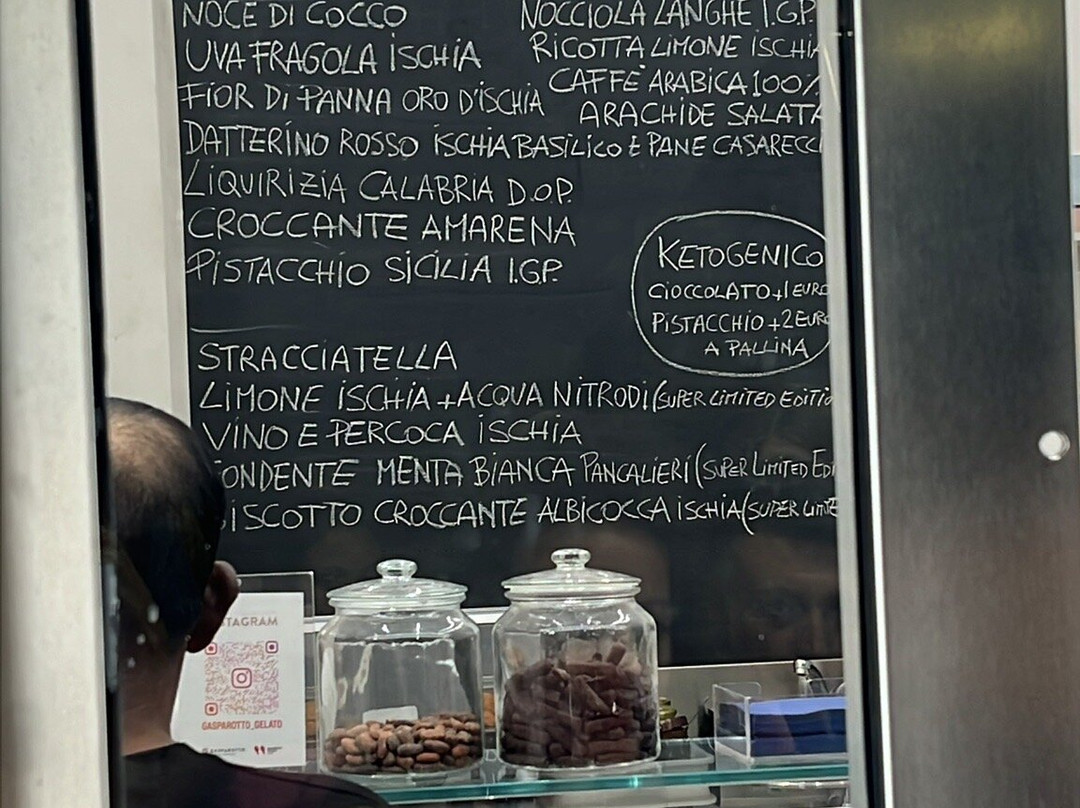 NOCE DI COCCO
UVA FRAGOLA ISCHIA
FIOR DI PANNA ORO D'ISCHIA
DATTERINO ROSSO ISCHIA BASILICO E PANE CASARECCI
LIQUIRIZIA CALABRIA D.O.P.
CROCCANTE AMARENA
PISTACCHIO SICILIA I.G.P.
NOCCIOLA LANGHE I.G.P.
RICOTTA LIMONE ISCHIA
CAFFE' ARABICA 100%
ARACHIDE SALATA
KETOGENICO
CIOCCOLATO +1 EURO
PISTACCHIO +2 EURO
A PALLINA
STRACCIATELLA
LIMONE ISCHIA + ACQUA NITRODI (SUPER LIMITED EDITIO
VINO E PERCOCA ISCHIA
ONDENTE MENTA BIANCA PANCALIERI (SUPER LIMITED EDI
ISCOTTO CROCCANTE ALBICOCCA ISCHIA (SUPER LIMITE
STAGRAM
GASPAROTTO_GELATO